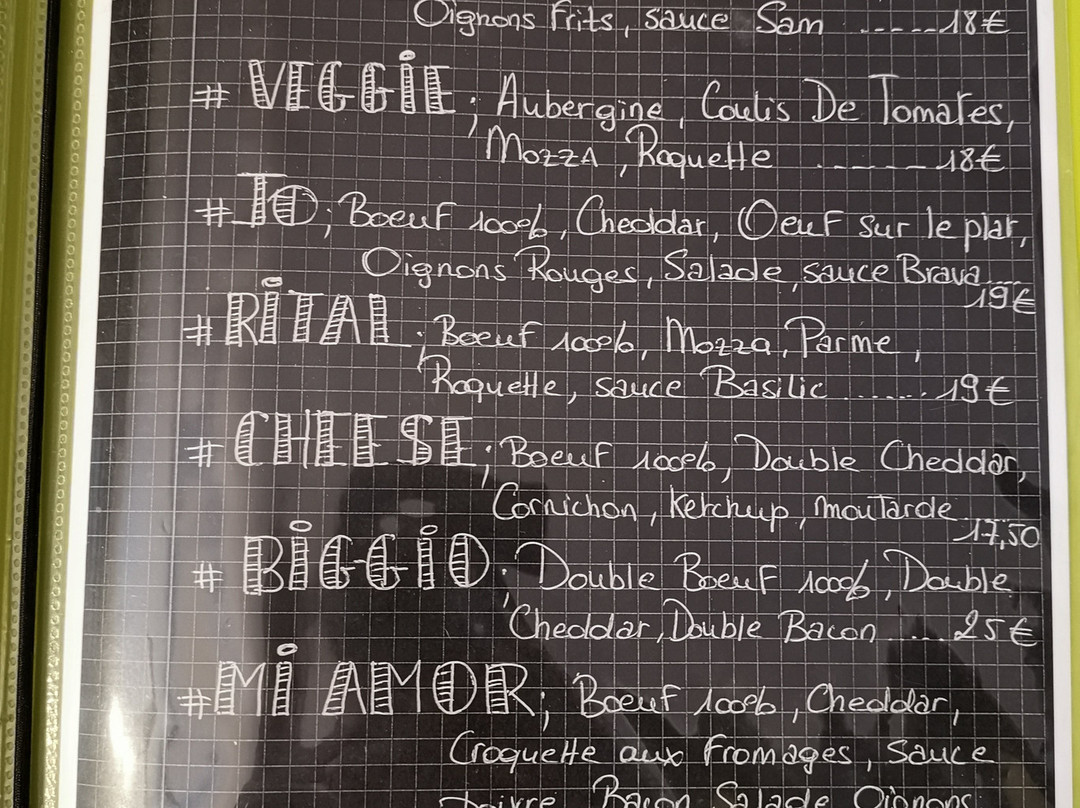 Oignons Frits, sauce Sam -----18€
# VEGGIE; Aubergine, Coulis De Tomates,
Mozza, Roquette ------18€
# JO; Boeuf 100%, Cheddar, Oeuf sur le plat,
Oignons Rouges, Salade, sauce Brava...
19€
# RITAL; Boeuf 100%, Mozza, Parme,
Roquette, sauce Basilic ...... 19€
# CHEESE; Boeuf 100%, Double Cheddar,
Cornichon, Ketchup, moutarde
17,50
# BIGGIO; Double Boeuf 100%, Double
Cheddar, Double Bacon .... 25€
# MI AMOR; Boeuf 100%, Cheddar,
Croquette aux Fromages, Sauce
Poivre Bacon Salade Oignons